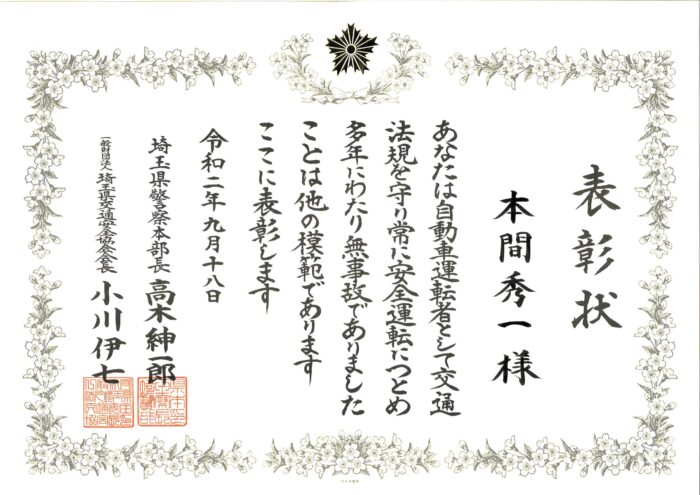 表彰状
本間秀一様
あなたは自動車運転者として交通
法規を守り常に安全運転につとめ
多年にわたり無事故でありました
ことは他の模範であります
ここに表彰します
令和二年九月十八日
埼玉県警察本部長 高木紳一郎
一般財団法人 埼玉県交通安全協会会長 小川伊七